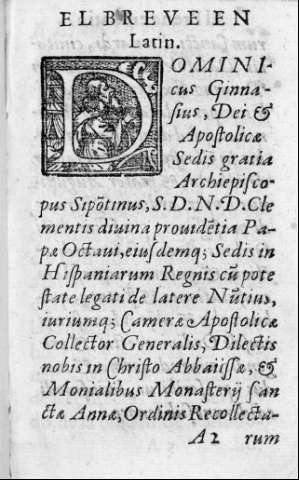 EL BREVE EN
Latin.
DOMINI-
cus Ginna-
sius, Dei &
Apostolicæ
Sedis gratia
Archiepisco-
pus Sipõtinus, S. D. N. D. Cle
mentis divina providẽtia Pa-
pæ Octaui, eiusdemq; Sedis in
Hispaniarum Regnis cũ pote
state legati de latere Nũtius,
iuriumq; Cameræ Apostolicæ
Collector Generalis, Dilectis
nobis in Christo Abbatissæ, &
Monialibus Monasterij san
ctæ Annæ, Ordinis Recollecta-
A2 rum